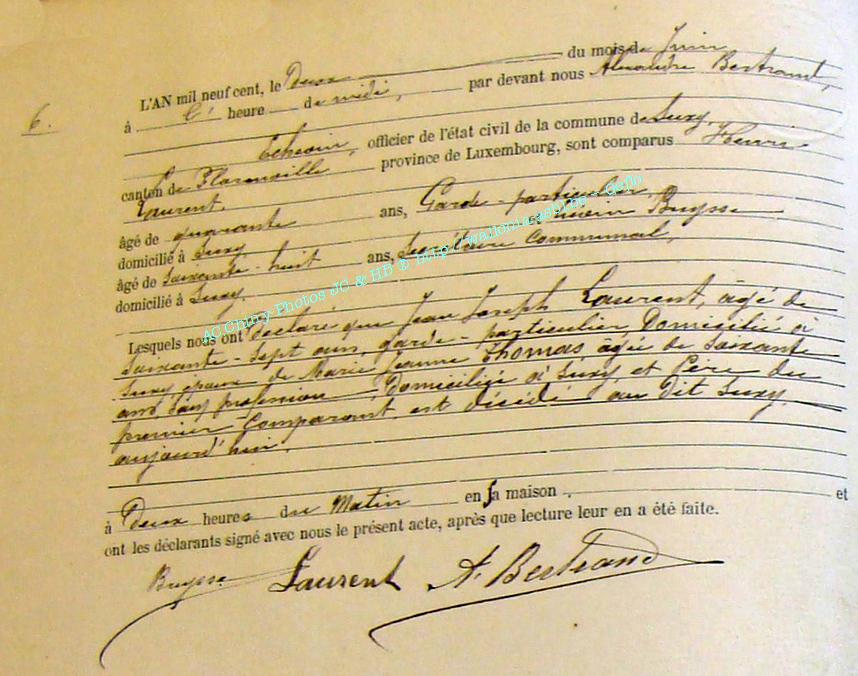 6.
L'AN mil neuf cent, le Deux du mois de Juin
à heure de midi, par devant nous Alexandre Bertrand,
Echevin, officier de l'état civil de la commune de Suxy,
canton de Florenville province de Luxembourg, sont comparus Henri
Laurent
âgé de quarante ans, Garde-particulier
domicilié à Suxy Buysse
âgé de Soixante-huit ans, Secrétaire Communal,
domicilié à Suxy.
Lesquels nous ont déclaré que Jean Joseph Laurent, âgé de
Soixante-sept ans, garde-particulier Domicilié à
Suxy époux de Marie Jeanne Thomas, âgée de Soixante
ans, Sans profession, Domiciliée à Suxy et Père du
premier Comparant est décédé au dit Suxy
aujourd'hui.
à Deux heures du Matin en sa maison. et
ont les déclarants signé avec nous le présent acte, après que lecture leur en a été faite.
Buysse Laurent A. Bertrand
AC Chiny Photos JC & HB © http://wallonia.asbl.be - Geflo